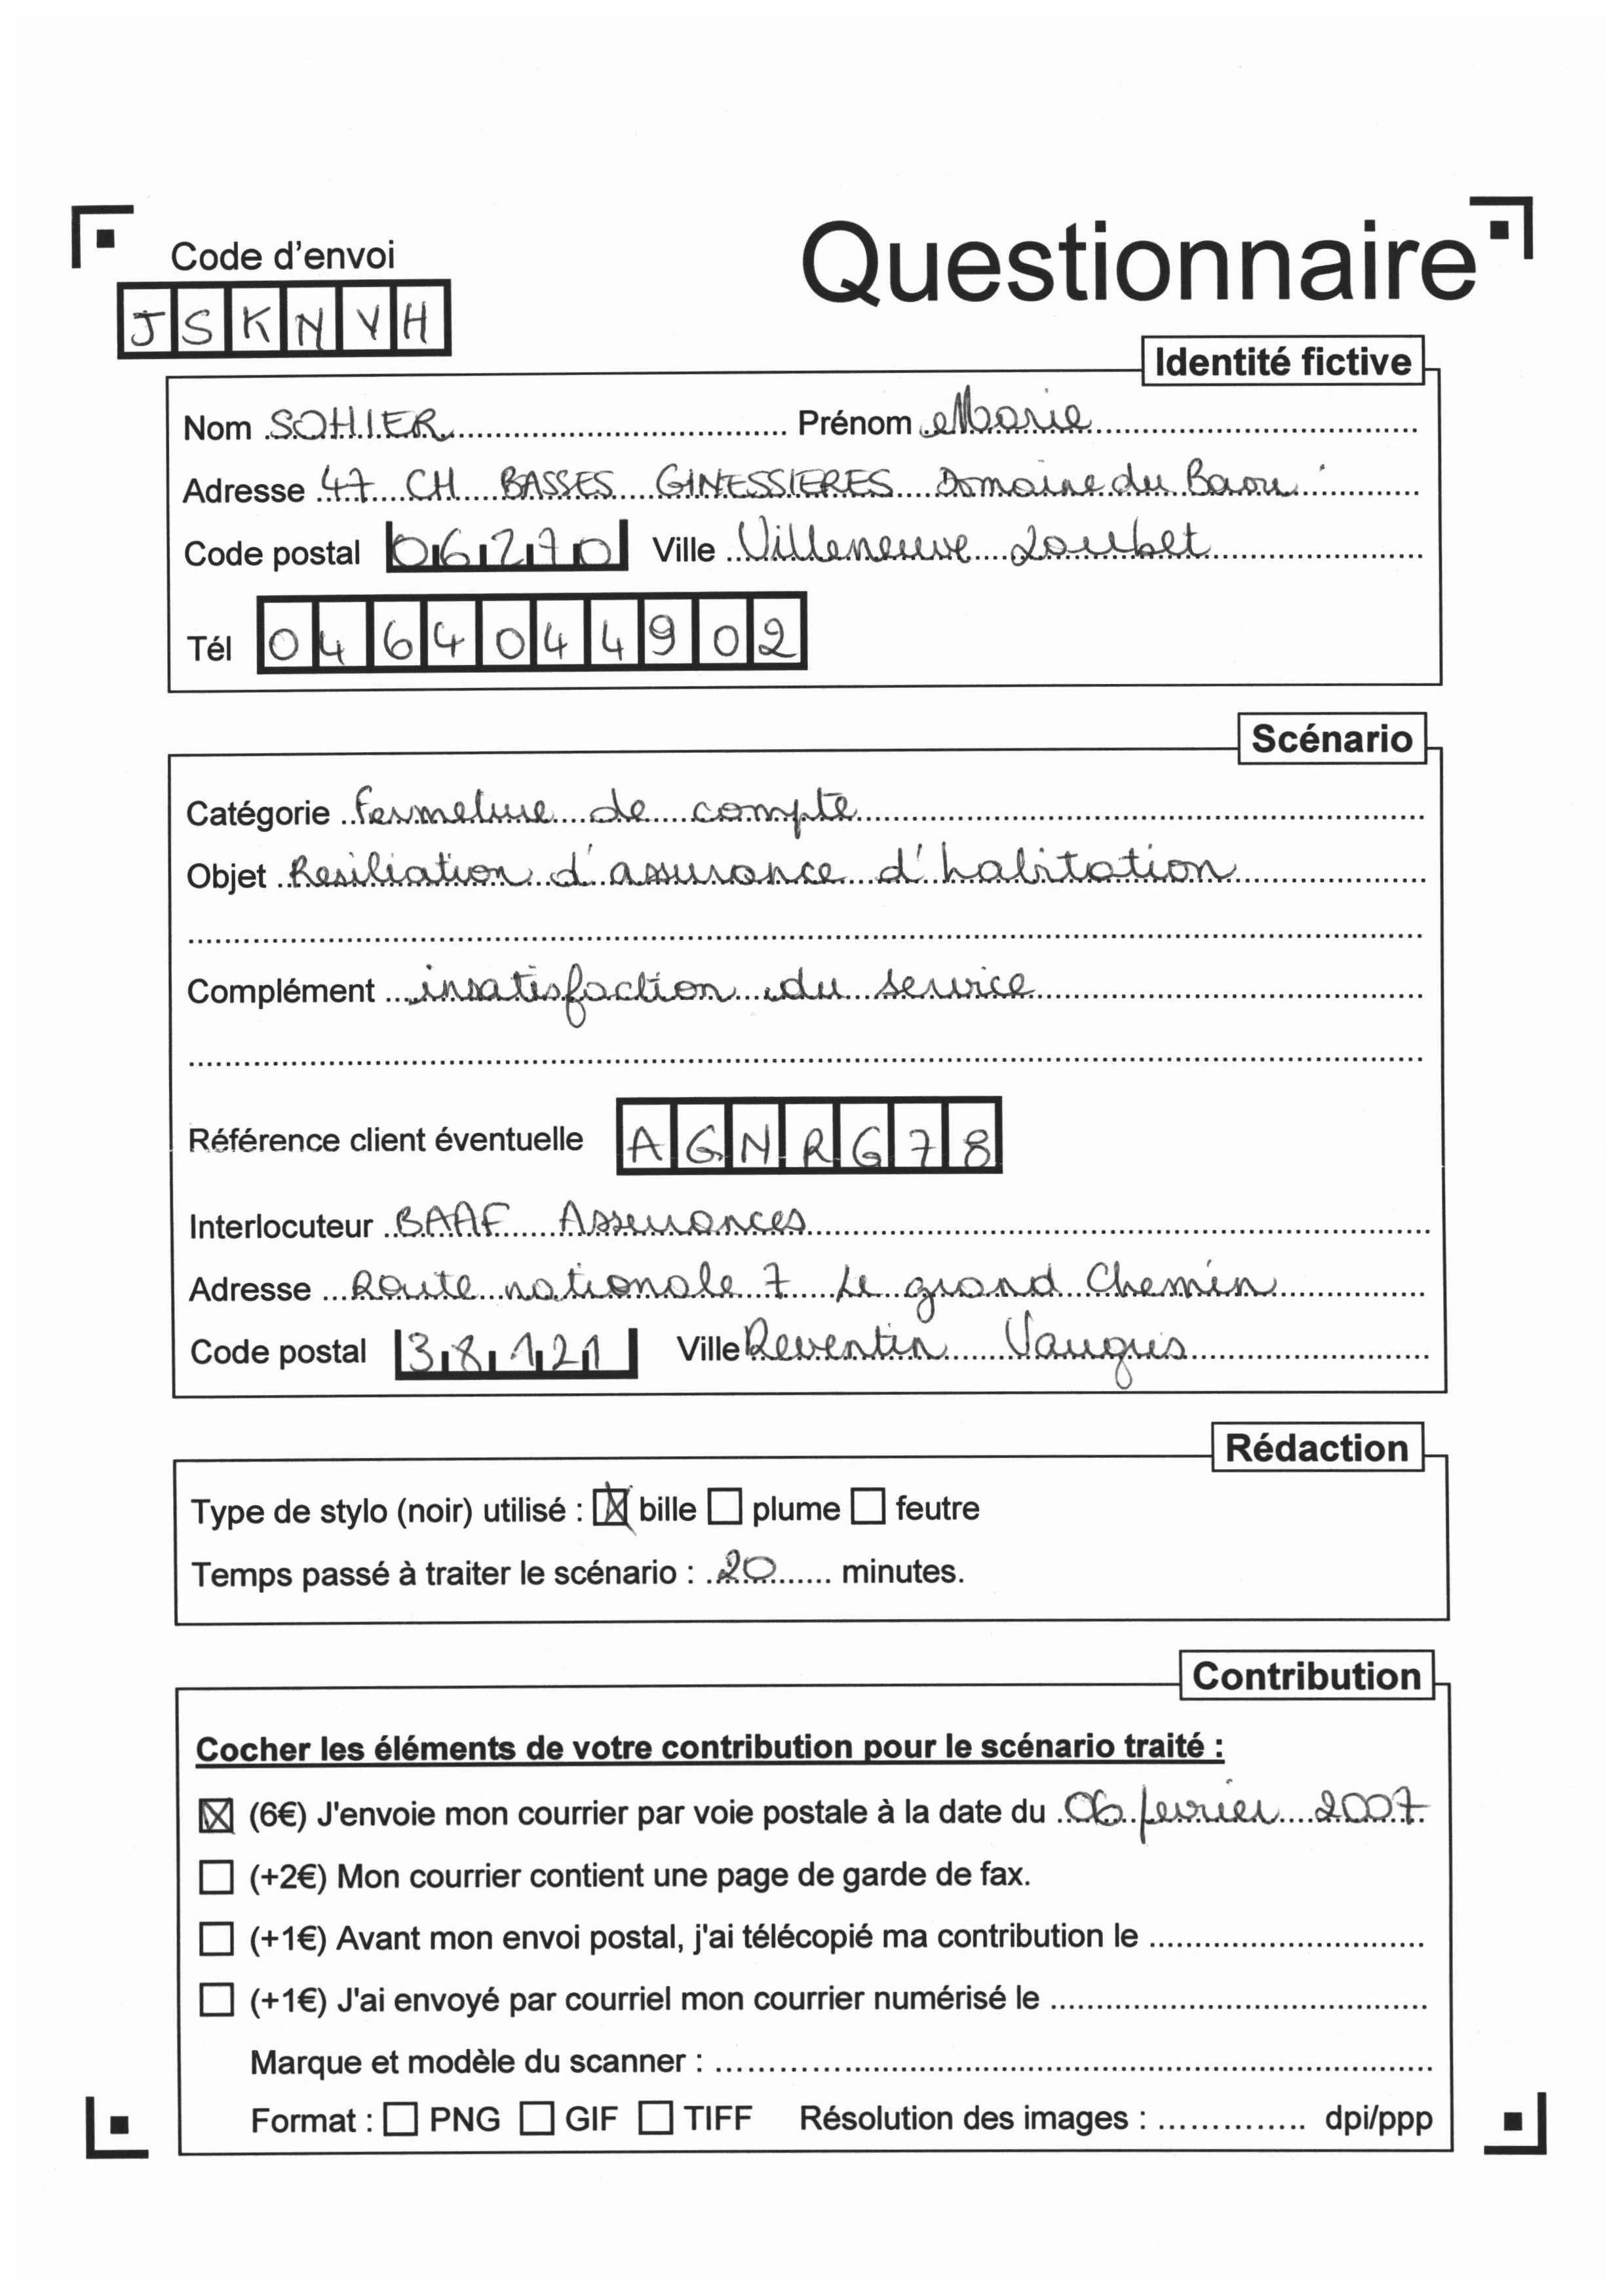 Code d'envoi
Questionnaire
JSKNVH
Identité fictive
Nom SOHIER Prénom Marie
Adresse 47 CH BASSES GINESSIERES Domaine du Baou
Code postal 06270 Ville Villeneuve Loubet
Tél 0464044902
Scénario
Catégorie Fermeture de compte
Objet Resiliation d'assurance d'habitation
Complément insatisfaction du service
Référence client éventuelle AGNRG78
Interlocuteur BAAF Assurances
Adresse Route nationale 7 Le grand Chemin
Code postal 38121 Ville Reventin Vaugris
Rédaction
Type de stylo (noir) utilisé : bille plume feutre
Temps passé à traiter le scénario : 20 minutes.
Contribution
Cocher les éléments de votre contribution pour le scénario traité :
(6€) J'envoie mon courrier par voie postale à la date du 06 fevrier 2007
(+2€) Mon courrier contient une page de garde de fax.
(+1€) Avant mon envoi postal, j'ai télécopié ma contribution le
(+1€) J'ai envoyé par courriel mon courrier numérisé le
Marque et modèle du scanner :
Format : PNG GIF TIFF Résolution des images : dpi/ppp